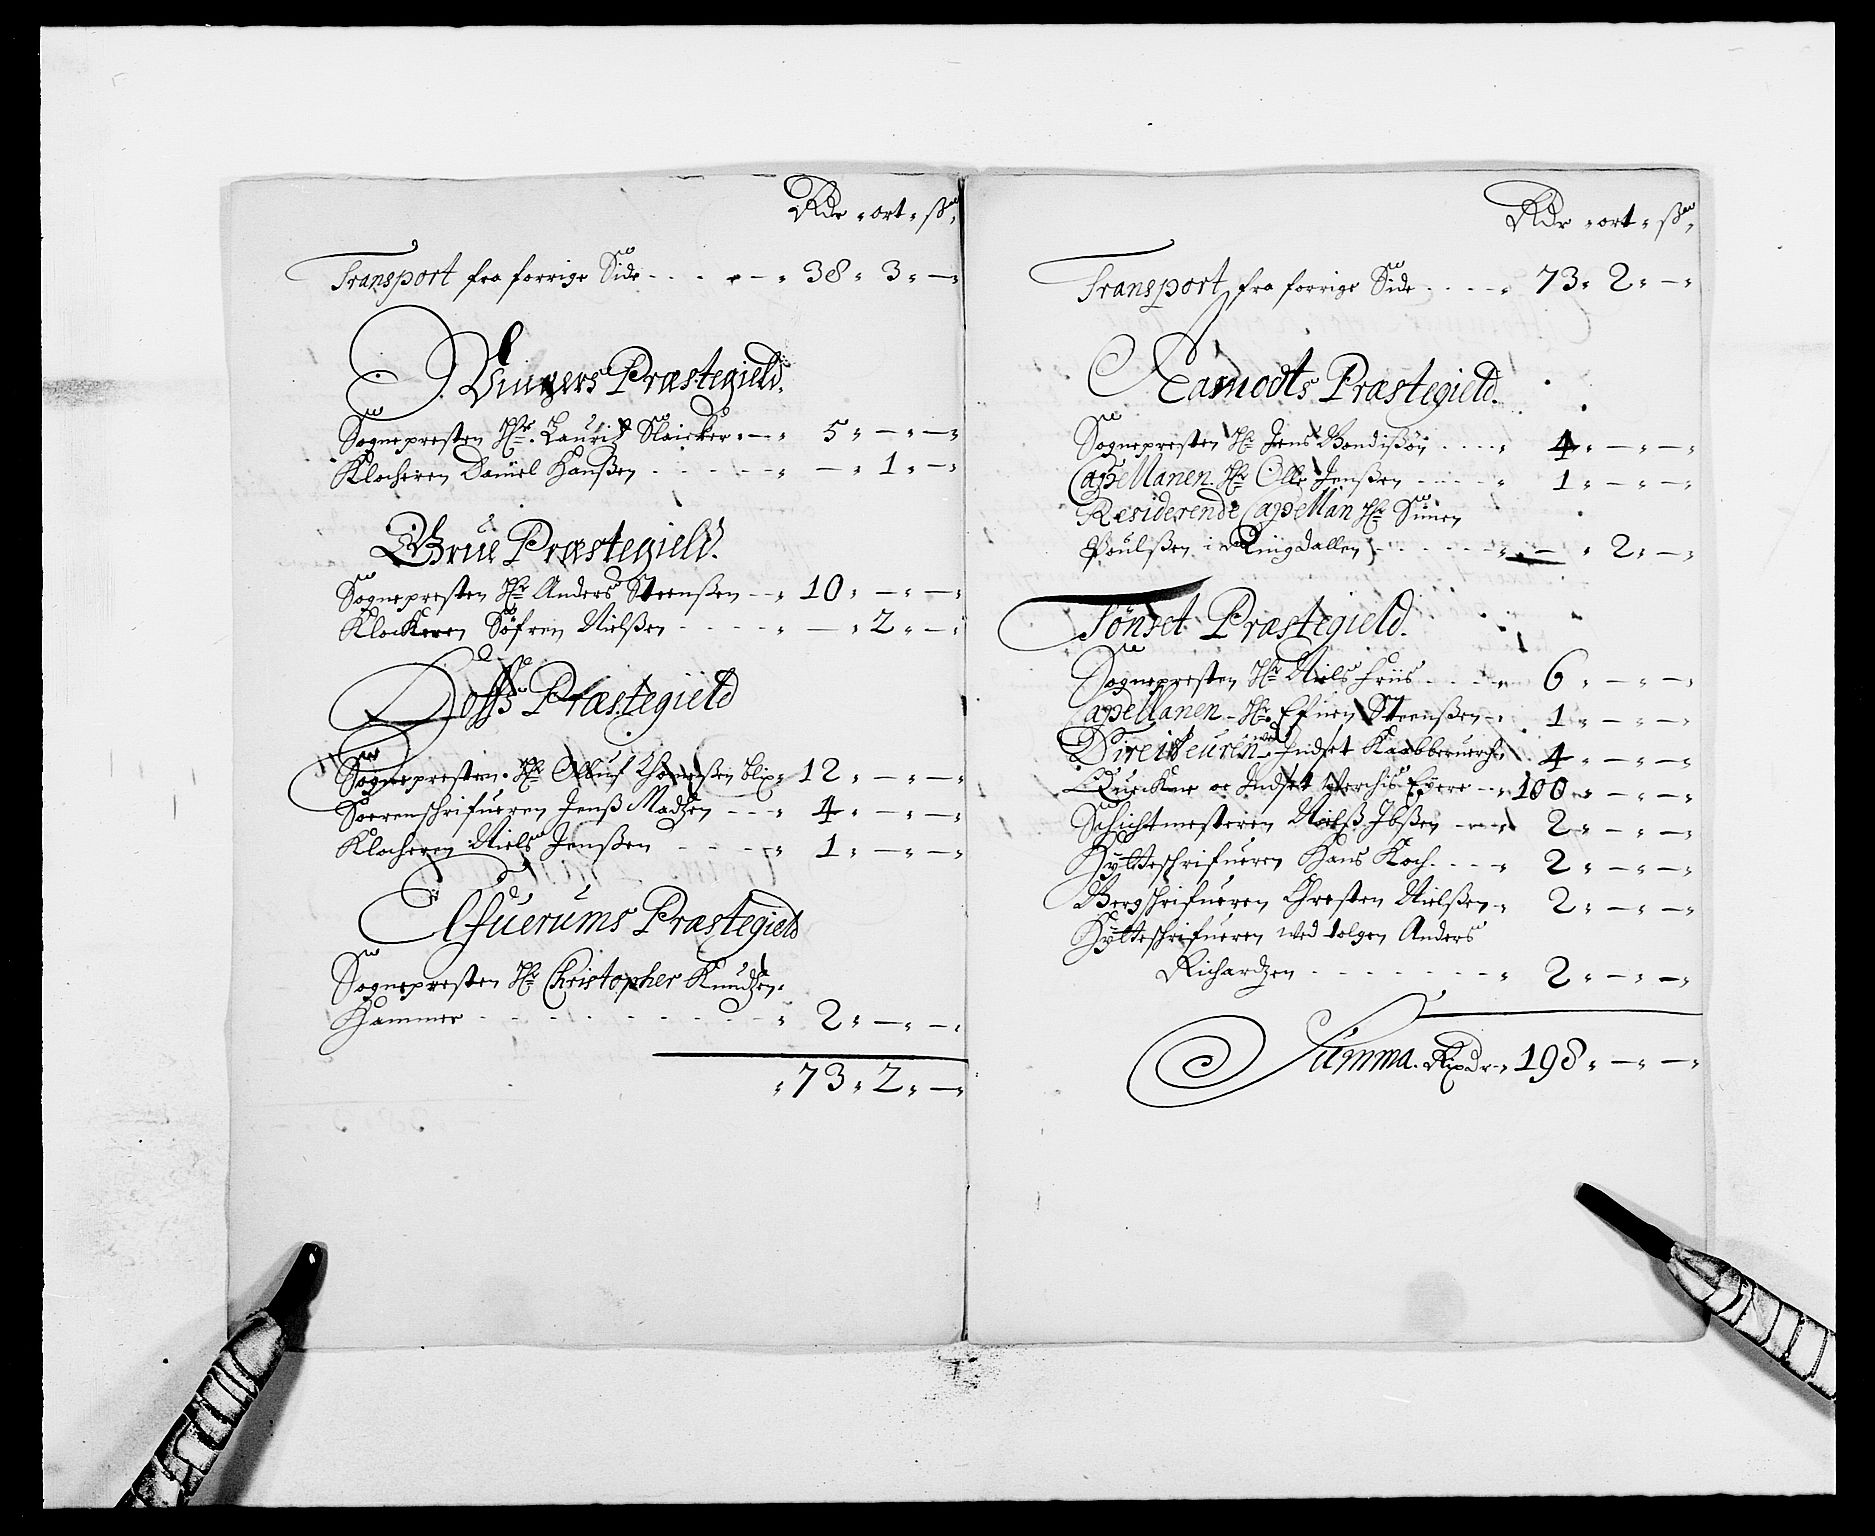 Rdr " ort " ß "
Transport fra forrige Side - - - - " 38 " 3 " — "
Vingers Præstegield.
Sognepresten Hr. Lauritz Slaicker " — " 5 " — " — "
Klocheren Daniel Hanßen - - - - " — " 1 " — "
Grue Præstegield.
Sognepresten Hr Anders Steenßen — " 10 " — " — "
Klockeren Söfren Nielßen - - - - " — " 2 " — "
Hoffs Præstegield
Sognepresten. Hr Olluf Thomeßen Blix " 12 " — " — "
Sorenschrifueren Jenß Madtzen - - - " 4 " — " — "
Klocheren Niels Jenßen - - - - " 1 " — " — "
Elfuerums Præstegield
Sognepresten Hr Christopher Knudtzen "
Hammer - - - - - - - - " 2 " — " — "
" 73 " 2 " — "
Rdr " ort " ß "
Transport fra forrige Side - - - - " 73 " 2 " — "
Aamodts Præstegield.
Sognepresten Hr Jens Bendißøn - - - - " 4 " — " — "
Capellanen Hr Olle Jenßen - - - - " 1 " — " — "
Residerende Capellan Hr Simen
Poulßen i Ringdallen - - - - - " — " 2 " — "
Tönset Præstegield.
Sognepresten Hr Niels Friis - - - - " 6 " — " — "
Capellanen - Hr. Efuen Steenßen - " 1 " — " — "
Directeuren ved Indset Kaabberuerch " 4 " — " — "
Quickne oc Indset Werchis Eyere - - " 100 " — " — "
Schichtmesteren Nielß Ibßen - - - " 2 " — " — "
Hytteschrifueren Hans Koch - - - - " 2 " — " — "
Bergschrifueren Chresten Nielßen - " 2 " — " — "
Hytteschrifueren ved tolgen Anders
Richardtzen - - - - - - - - " 2 " — " — "
Summa. Rixdr " 198 " — " — "